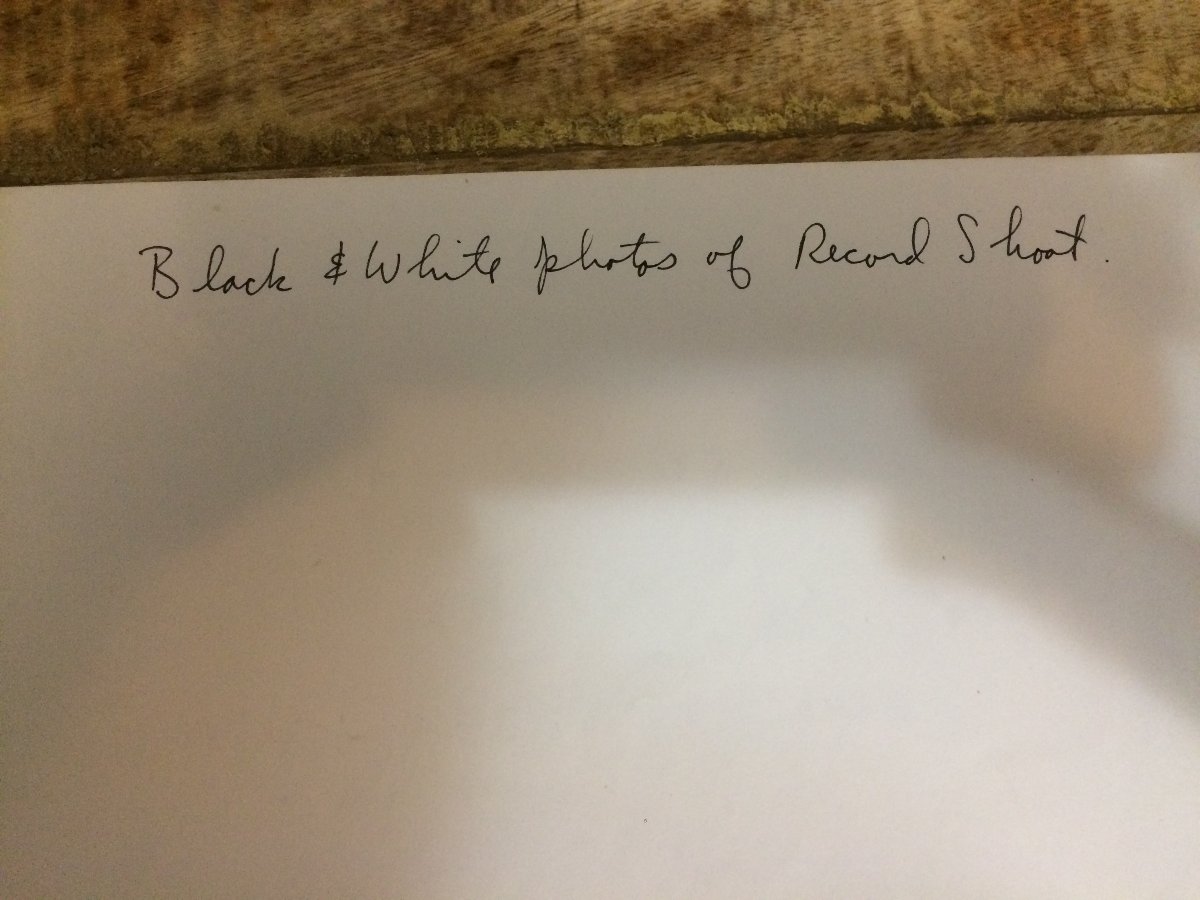 Black & White photos of Record Shoot.